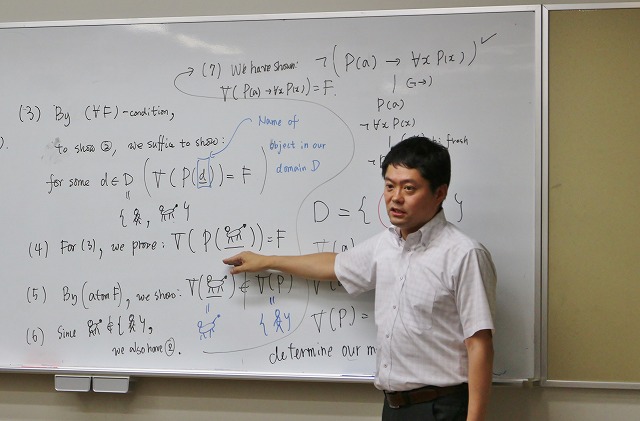 (7) We have shown:
V(P(a) → ∀x P(x)) = F.
¬(P(a) → ∀x P(x)) ✓
P(a)
¬∀x P(x)
fresh
(3) By (∀F)-condition,
to show ②, we suffice to show:
for some d ∈ D (V(P(d)) = F)
Name of
object in our
domain D
D = {
(4) For (3), we prove: V(P( )) = F
(5) By (atom F), we show: V( ) ∉ V(P)
V(P) =
(6) Since ∉ { },
we also have ②.
determine our m